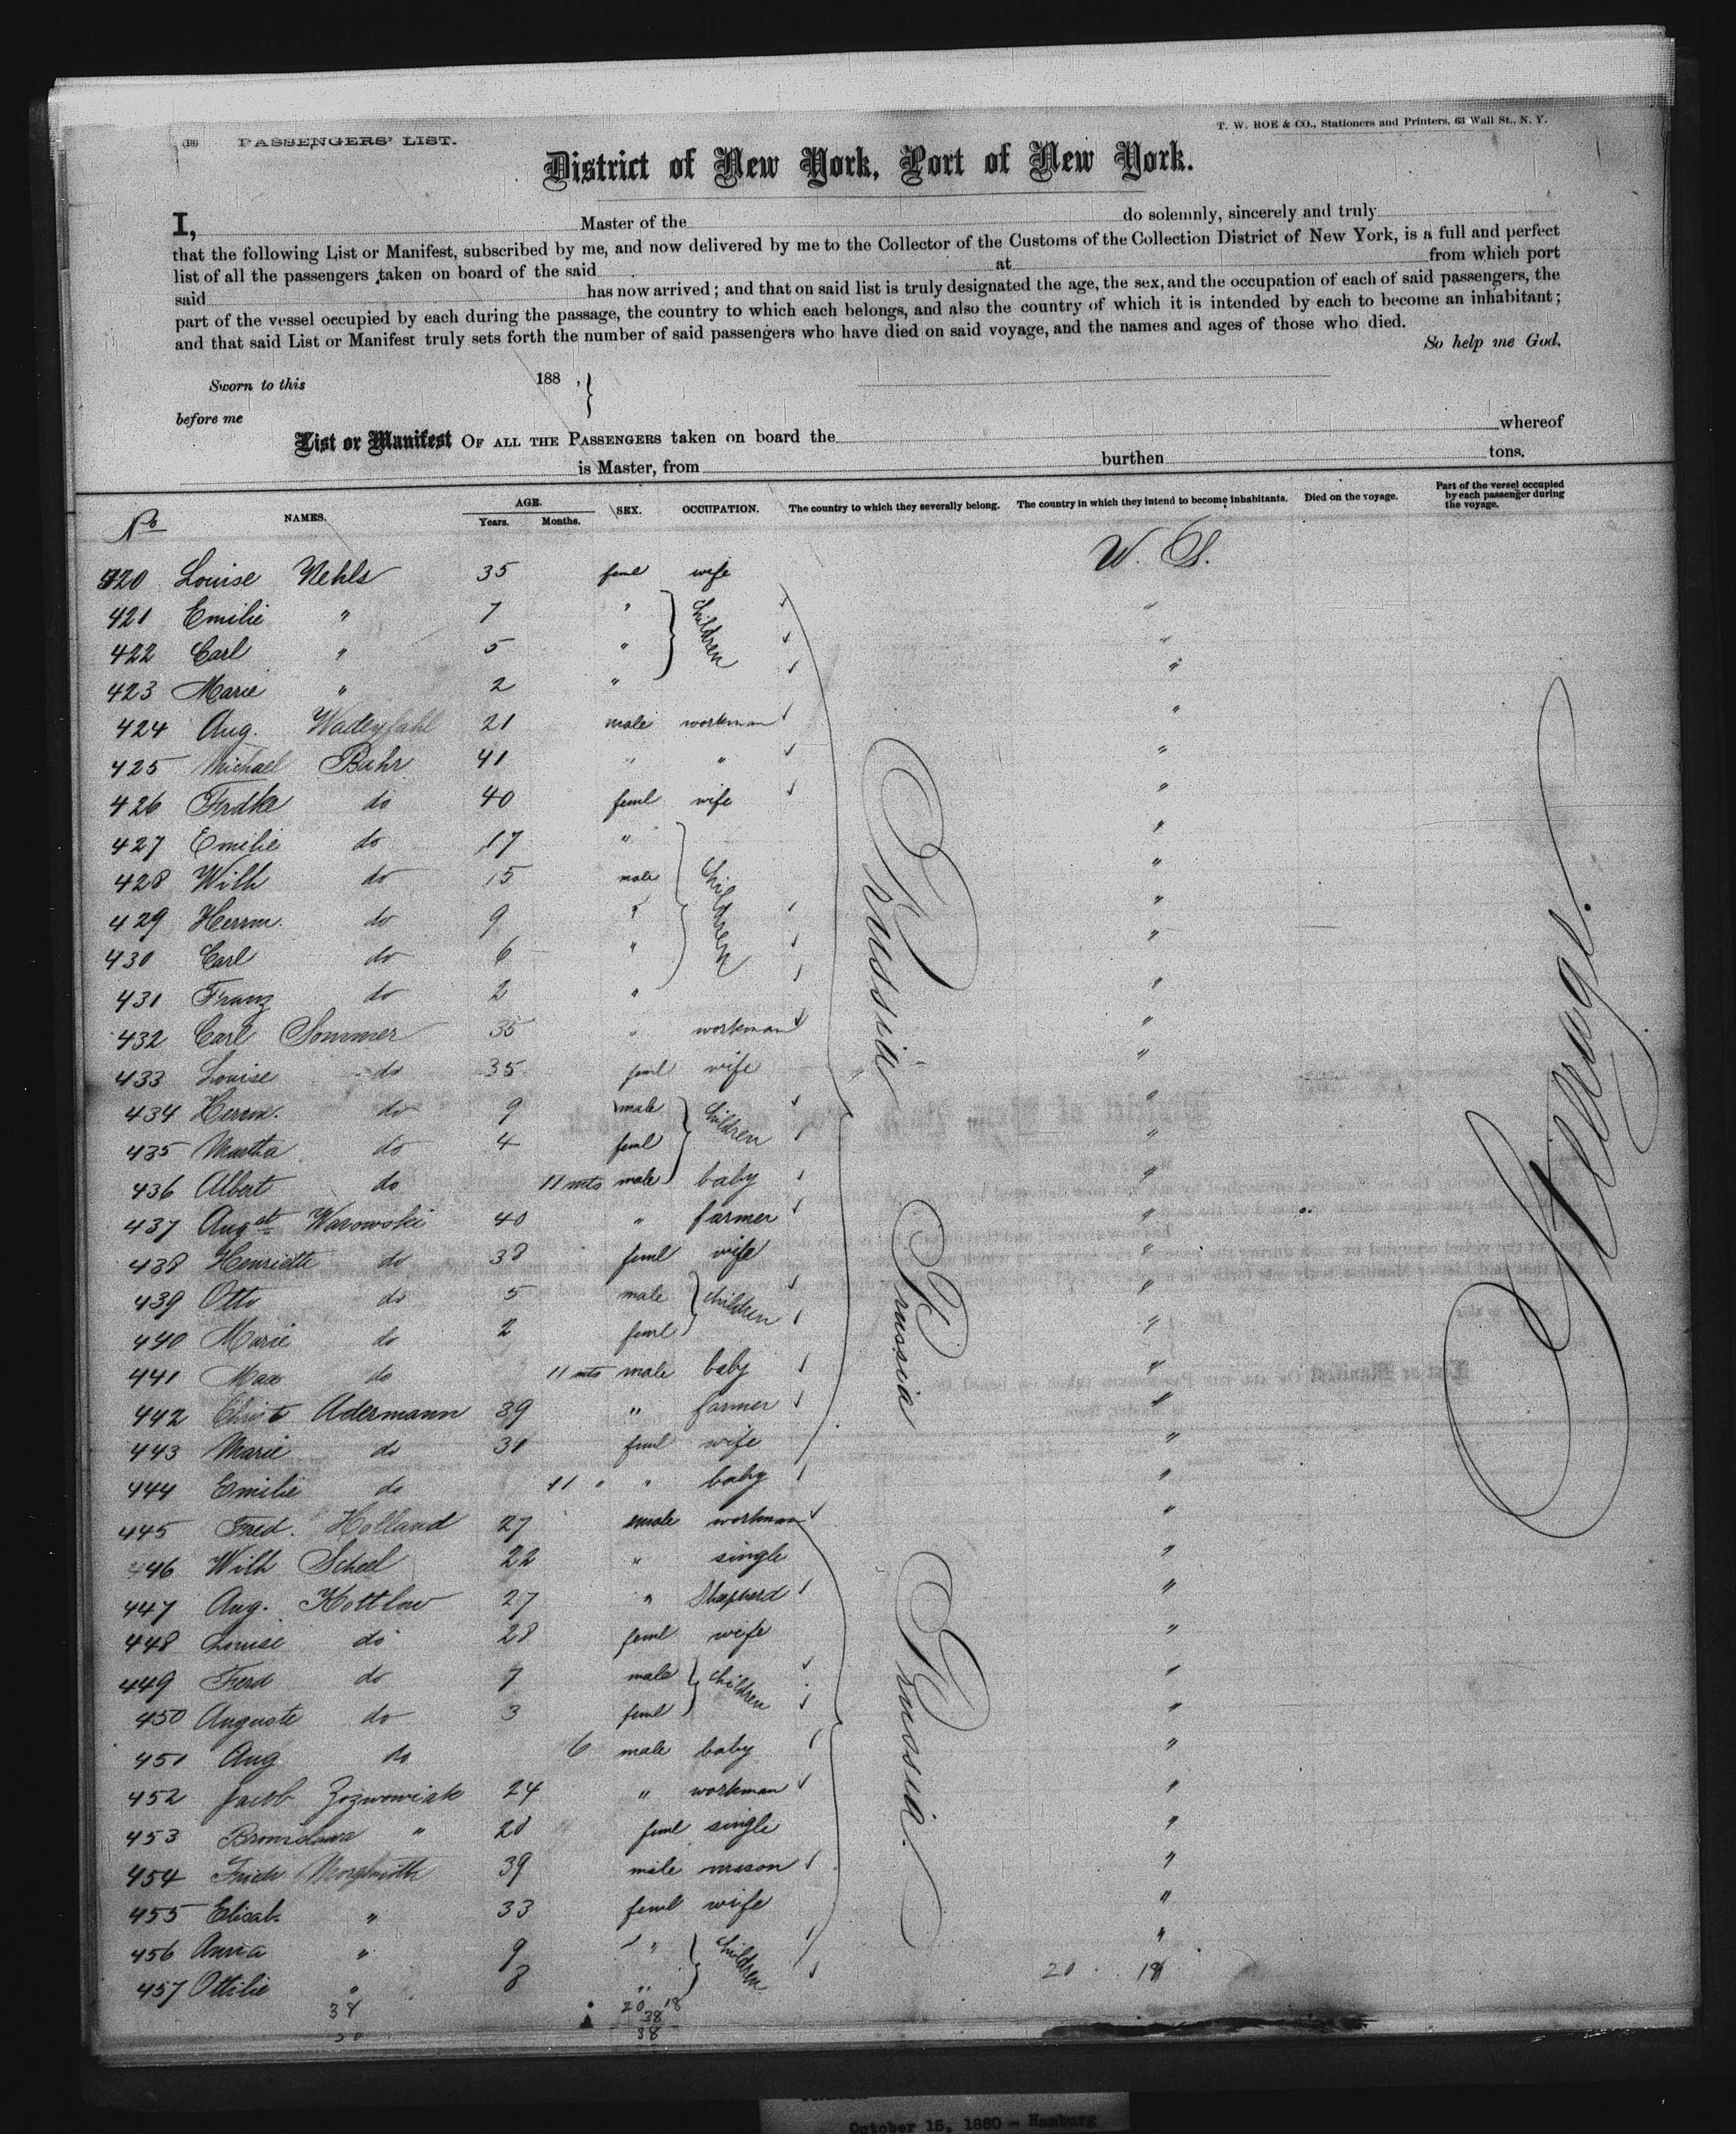 (18) PASSENGERS' LIST.
T. W. ROE & CO., Stationers and Printers, 63 Wall St., N. Y.
District of New York, Port of New York.
I, Master of the do solemnly, sincerely and truly
that the following List or Manifest, subscribed by me, and now delivered by me to the Collector of the Customs of the Collection District of New York, is a full and perfect
list of all the passengers taken on board of the said at from which port
said has now arrived; and that on said list is truly designated the age, the sex, and the occupation of each of said passengers, the
part of the vessel occupied by each during the passage, the country to which each belongs, and also the country of which it is intended by each to become an inhabitant;
and that said List or Manifest truly sets forth the number of said passengers who have died on said voyage, and the names and ages of those who died.
So help me God.
Sworn to this 188 ,
before me
List or Manifest OF ALL THE PASSENGERS taken on board the whereof
is Master, from burthen tons.
No NAMES. AGE. Years. Months. SEX. OCCUPATION. The country to which they severally belong. The country in which they intend to become inhabitants. Died on the voyage. Part of the vessel occupied by each passenger during the voyage.
420 Louise Nehls 35 feml wife U. S.
421 Emilie " 7 " children "
422 Carl " 5 " "
423 Marie " 2 " "
424 Aug. 21 male workman "
425 Michael Bahr 41 " " "
426 Frdke do 40 feml wife "
427 Emilie do 17 " children "
428 Wilh do 15 male "
429 Herrm. do 9 " "
430 Carl do 6 " "
431 Franz do 2 " "
432 Carl Sommer 35 " workman "
433 Louise do 35 feml wife "
434 Herrm. do 9 male children "
435 Martha do 4 feml "
436 Albert do 11 mts male baby "
437 Augst Warowski 40 " farmer "
438 Henriette do 38 feml wife "
439 Otto do 5 male children "
440 Marie do 2 feml "
441 Max do 11 mts male baby "
442 Christ Adermann 39 " farmer "
443 Marie do 31 feml wife "
444 Emilie do 11 " " baby "
445 Fred. Holland 27 male workman "
446 Wilh Scheel 22 " single "
447 Aug. Kottlow 27 " Shepherd "
448 Louise do 28 feml wife "
449 Ferd do 7 male children "
450 Auguste do 3 feml "
451 Aug do 6 male baby "
452 Jacob 24 " workman "
453 " 20 feml single "
454 39 male mason "
455 Elisab. " 33 feml wife "
456 Anna " 9 " children "
457 Ottilie " 8 "
Prussia
Prussia
Prussia.
Steerage.
20 18
38
20 18
38
38
October 15, 1880 - Hamburg